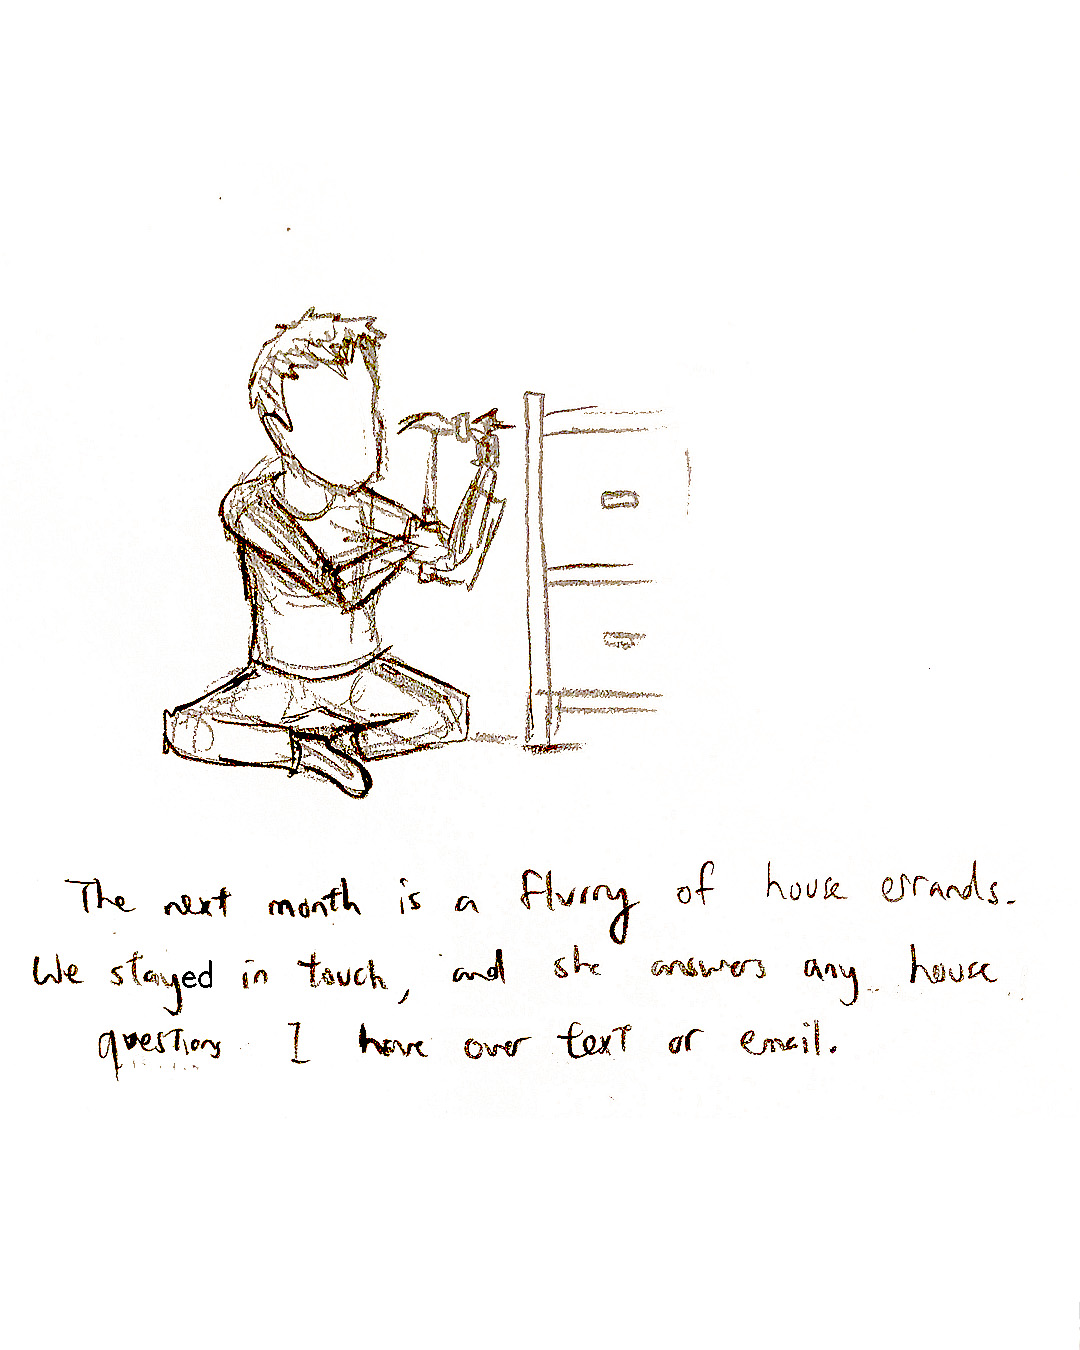 The next month is a flurry of house errands.
We stayed in touch, and she answers any house
questions I have over text or email.